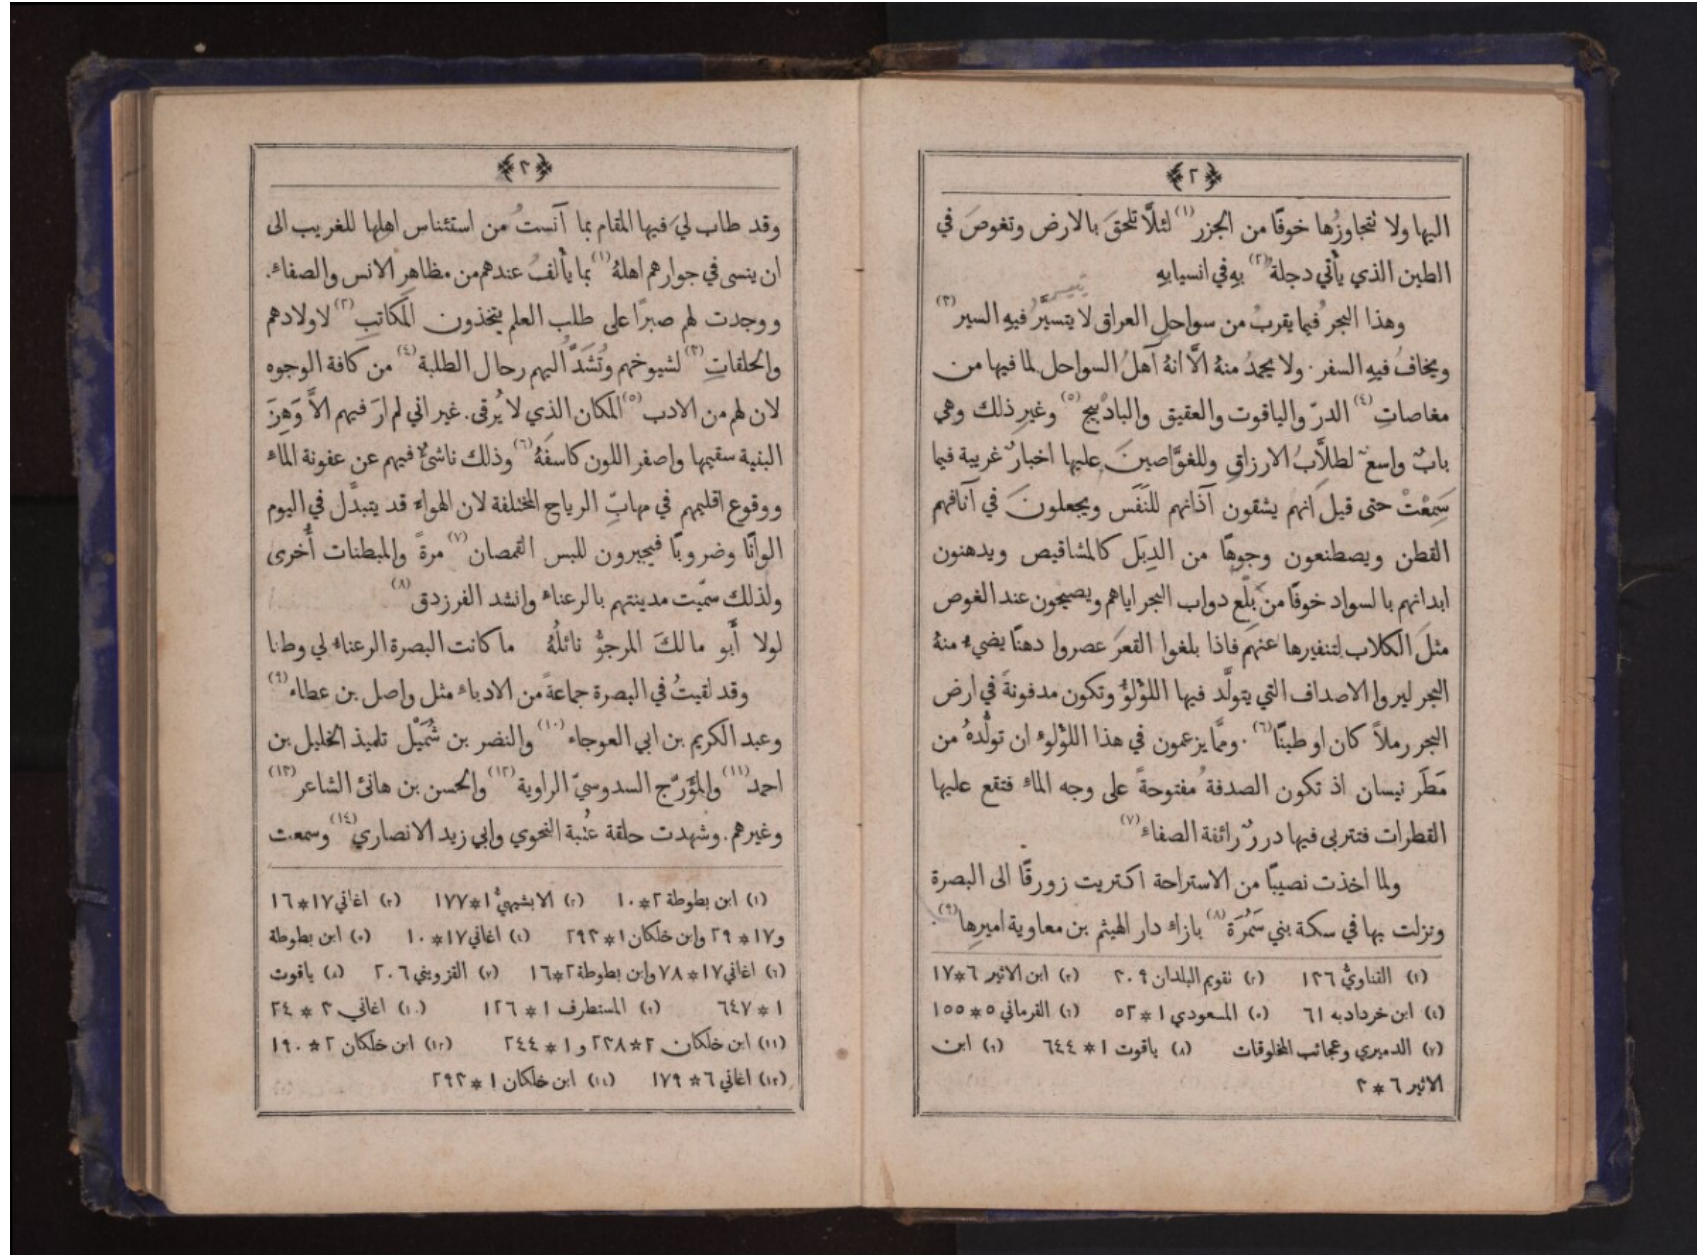 ﴿٢﴾
اليها ولا تتجاوزُها خوفًا من الجزر (١) لئلَّا تلحقَ بالارض وتغوصَ في
الطين الذي يأتي دجلة (٢) بهِ في انسيابهِ
وهذا البحر فُيما يقربُ من سواحلِ العراق لا يتسيَّرُ فيهِ السير (٣)
ويخافُ فيهِ السفر. ولا يحمدُ منهُ الَّا انهُ آهلُ السواحل لما فيها من
مغاصاتِ (٤) الدرّ والياقوت والعقيق والباذبيج (٥) وغيرِ ذلك وهي
بابٌ واسعٌ لطلَّابُ الارزاقِ وللغوَّاصينَ عليها اخبارٌ غريبة فيما
سَمِعْتْ حتى قيل انهم يشقون آذانهم للنَفَس ويجعلونَ في آنافهم
القطن ويصطنعون وجوهًا من الدِبَل كالمشاقيص ويدهنون
ابدانهم بالسواد خوفًا من بَلْع دواب البحر اياهم ويصيحون عند الغوص
مثلَ الكلاب لتنفيرها عنهَم فاذا بلغوا القعرَ عصروا دهنًا يضيءُ منهُ
البحر ليروا الاصداف التي يتولَّد فيها اللؤلوُّ وتكون مدفونةً في ارض
البحر رملاً كان او طينًا (٦). وممَّا يزعمون في هذا اللؤلوءِ ان تولُّدهُ من
مَطَر نيسان اذ تكون الصدفةُ مفتوحةً على وجه الماء فتقع عليها
القطرات فتتربى فيها دررٌ رائقة الصفاء (٧)
ولما اخذت نصيبًا من الاستراحة اكتريت زورقًا الى البصرة
ونزلت بها في سكة بني سَمُرَة (٨) بازاءِ دار الهيثم بن معاوية اميرِها (٩).
(١) القناويُّ ١٢٦ (٢) تقويم البلدان ٣٠٩ (٣) ابن الاثير ٦*١٧
(٤) ابن خرداذبه ٦١ (٥) المسعودي ١*٥٢ (٦) القرماني ٥*١٥٥
(٧) الدميري وعجائب المخلوقات (٨) ياقوت ١*٦٤٤ (٩) ابن
الاثير ٦*٣
﴿٣﴾
وقد طاب لي فيها المقام بما آنستُ من استئناس اهلِها للغريب الى
ان ينسى في جوارهم اهلهُ (١) بما يألفُ عندهم من مظاهرِ الانس والصفاءِ.
ووجدت لهم صبرًا على طلب العلم يتخذون المكاتبِ (٢) لاولادهم
والحلقاتِ (٣) لشيوخهم وتُشَدُّ اليهم رحال الطلبة (٤) من كافة الوجوه
لان لهم من الادب (٥) المكان الذي لا يُرقى. غير اني لم ارَ فيهم الاَّ وَهِنَ
البنية سقيمها واصفر اللون كاسفَهُ (٦) وذلك ناشئٌ فيهم عن عفونة الماء
ووقوع اقليمهم في مهابِّ الرياح المختلفة لان الهواء قد يتبدَّل في اليوم
الوانًا وضروبًا فيجبرون للبس القمصان (٧) مرةً والمبطنات أُخرى
ولذلك سمّيت مدينتهم بالرعناء وانشد الفرزدق (٨)
لولا أَبو مالكَ المرجوُّ نائلُهُ ما كانت البصرة الرعناء لي وطنا
وقد لقيتُ في البصرة جماعةً من الادباء مثل واصل بن عطاء (٩)
وعبد الكريم بن ابي العوجاء (١٠) والنضر بن شُمَيْل تلميذ الخليل بن
احمد (١١) والمؤرّج السدوسيّ الراوية (١٢) والحسن بن هانئ الشاعر (١٣)
وغيرهم. وشهدت حلقة عُتبة النحوي وابي زيد الانصاري (١٤) وسمعت
(١) ابن بطوطة ٢*١٠ (٢) الابشيهيُّ ١*١٧٧ (٣) اغاني ١٧*١٦
و١٧*٢٩ وابن خلكان ١*٢٩٣ (٤) اغاني ١٧*١٠ (٥) ابن بطوطة
(٦) اغاني ١٧*٧٨ وابن بطوطة ٢*١٦ (٧) القزويني ٢٠٦ (٨) ياقوت
١*٦٤٧ (٩) المستطرف ١*١٢٦ (١٠) اغاني ٣*٢٤
(١١) ابن خلكان ٢*٢٣٨ و١*٢٤٤ (١٢) ابن خلكان ٢*١٩٠
(١٣) اغاني ٦*١٧٩ (١٤) ابن خلكان ١*٢٩٣